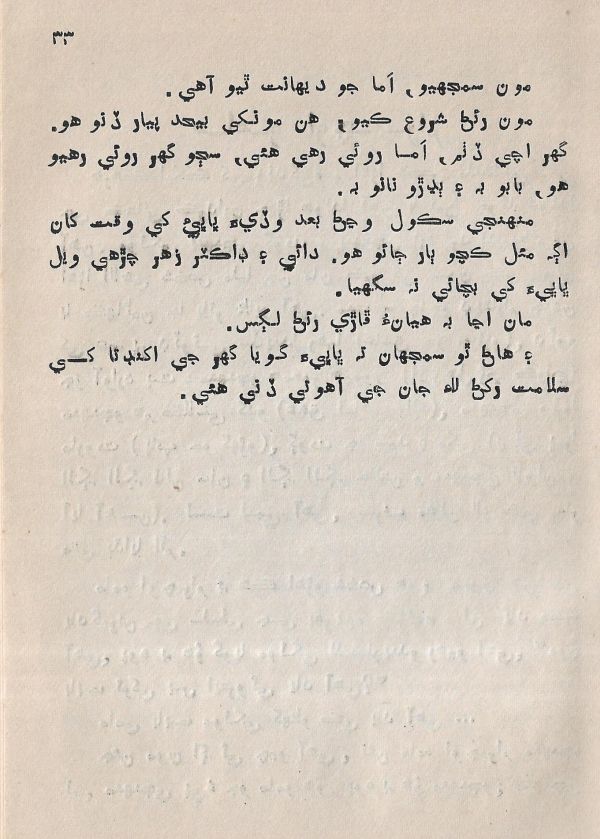 ٣٣
مون سمجهيو، اَما جو ديهانت ٿيو آهي.
مون رئڻ شروع ڪيو، هن مونکي بيحد پيار ڏنو هو.
گهر اچي ڏٺم، اَمسا روئي رهي هئي، سڄو گهر روئي رهيو
هو، بابو به ۽ ٻڍڙو نانو به.
منهنجي سڪول وڃڻ بعد وڏيءَ ڀاڀيءَ کي وقت کان
اڳ مئل ڪچو ٻار ڄائو هو. دائي ۽ ڊاڪٽر زهر چڙهي ويل
ڀاڀيءَ کي بچائي نہ سگهيا.
مان اڃا به هيانءُ ڦاڙي رئڻ لڳس.
۽ هاڻ ٿو سمجهان تہ ڀاڀيءَ گويا گهر جي اکنڊتا کــي
سلامت رکڻ لاءِ جان جي آهوتي ڏني هئي.